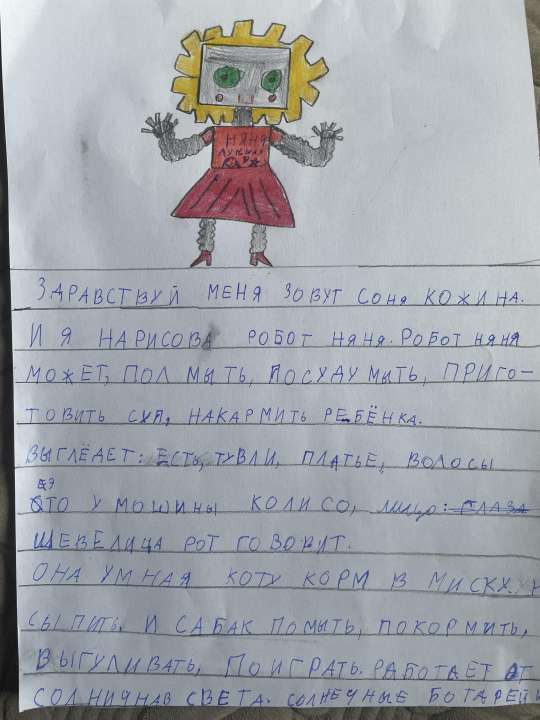 НЯНЯ
ЛУЧШАЯ
ЗДРАВСТВУЙ МЕНЯ ЗОВУТ СОНЯ КОЖИНА.
И Я НАРИСОВА РОБОТ НЯНЯ. РОБОТ НЯНЯ
МОЖЕТ, ПОЛ МЫТЬ, ПОСУДУ МЫТЬ, ПРИГО-
ТОВИТЬ СУП, НАКАРМИТЬ РЕБЁНКА.
ВЫГЛЁДЕТ: ЕСТЬ, ТУВЛИ, ПЛАТЬЕ, ВОЛОСЫ
ЭТО У МОШИНЫ КОЛИСО, лицо: ГЛАЗА
ШЕВЕЛИЦА РОТ ГОВОРИТ.
ОНА УМНАЯ КОТУ КОРМ В МИСКУ.
СЫПИТЬ. И САБАК ПОМЫТЬ, ПОКОРМИТЬ,
ВЫГУЛИВАТЬ, ПОИГРАТЬ. РАБОТАЕТ ОТ
СОЛНИЧНАВ СВЕТА. СОЛНЕЧНЫЕ БОТАРЕЙ